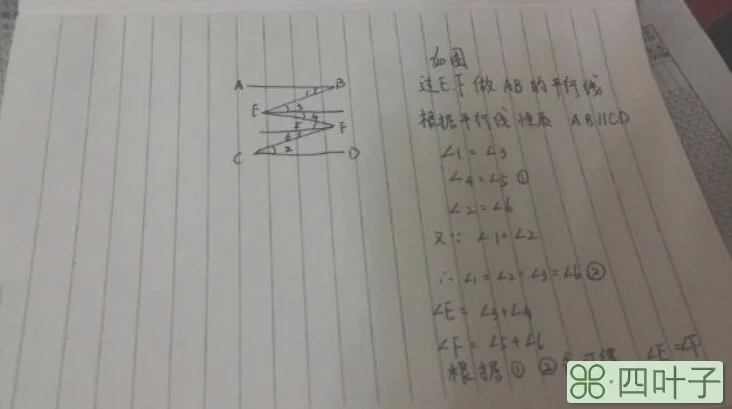 A B
1
E 3
4
5 F
6
C 2 D
如图
过E.F做AB的平行线
根据平行线性质 AB∥CD
∠1=∠3
∠4=∠5①
∠2=∠6
又∵ ∠1=∠2
∴∠1=∠2=∠3=∠6②
∠E=∠3+∠4
∠F=∠5+∠6
根据①② ∠E=∠F
四叶子